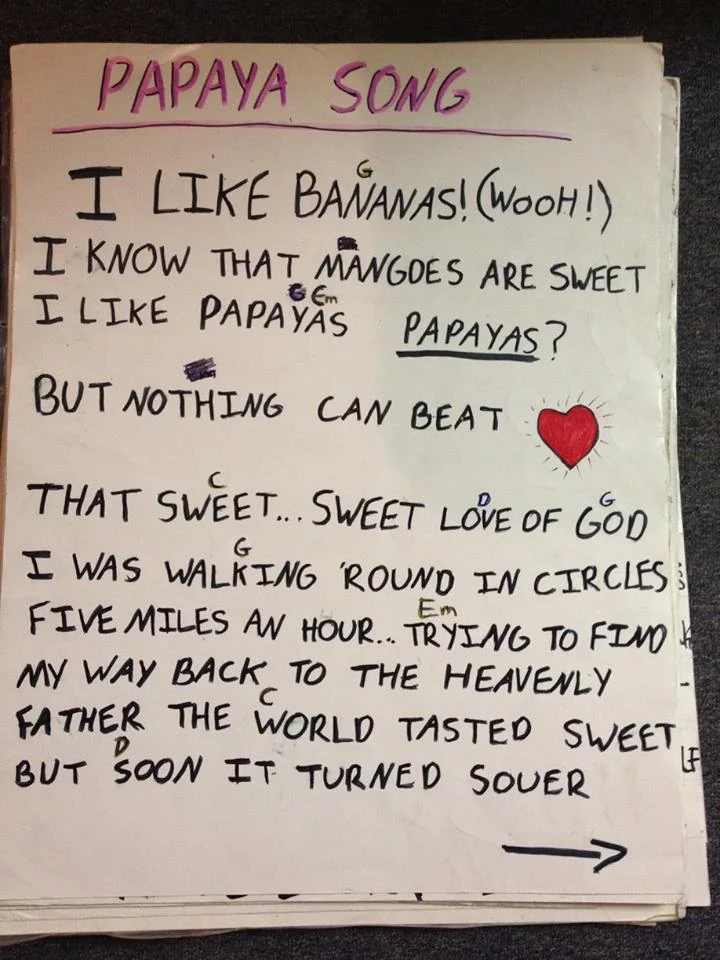 PAPAYA SONG
G
I LIKE BANANAS! (WOOH!)
I KNOW THAT MANGOES ARE SWEET
G Em
I LIKE PAPAYAS PAPAYAS?
BUT NOTHING CAN BEAT
C D G
THAT SWEET... SWEET LOVE OF GOD
G
I WAS WALKING 'ROUND IN CIRCLES
Em
FIVE MILES AN HOUR... TRYING TO FIND
MY WAY BACK TO THE HEAVENLY
C
FATHER THE WORLD TASTED SWEET
D
BUT SOON IT TURNED SOUER